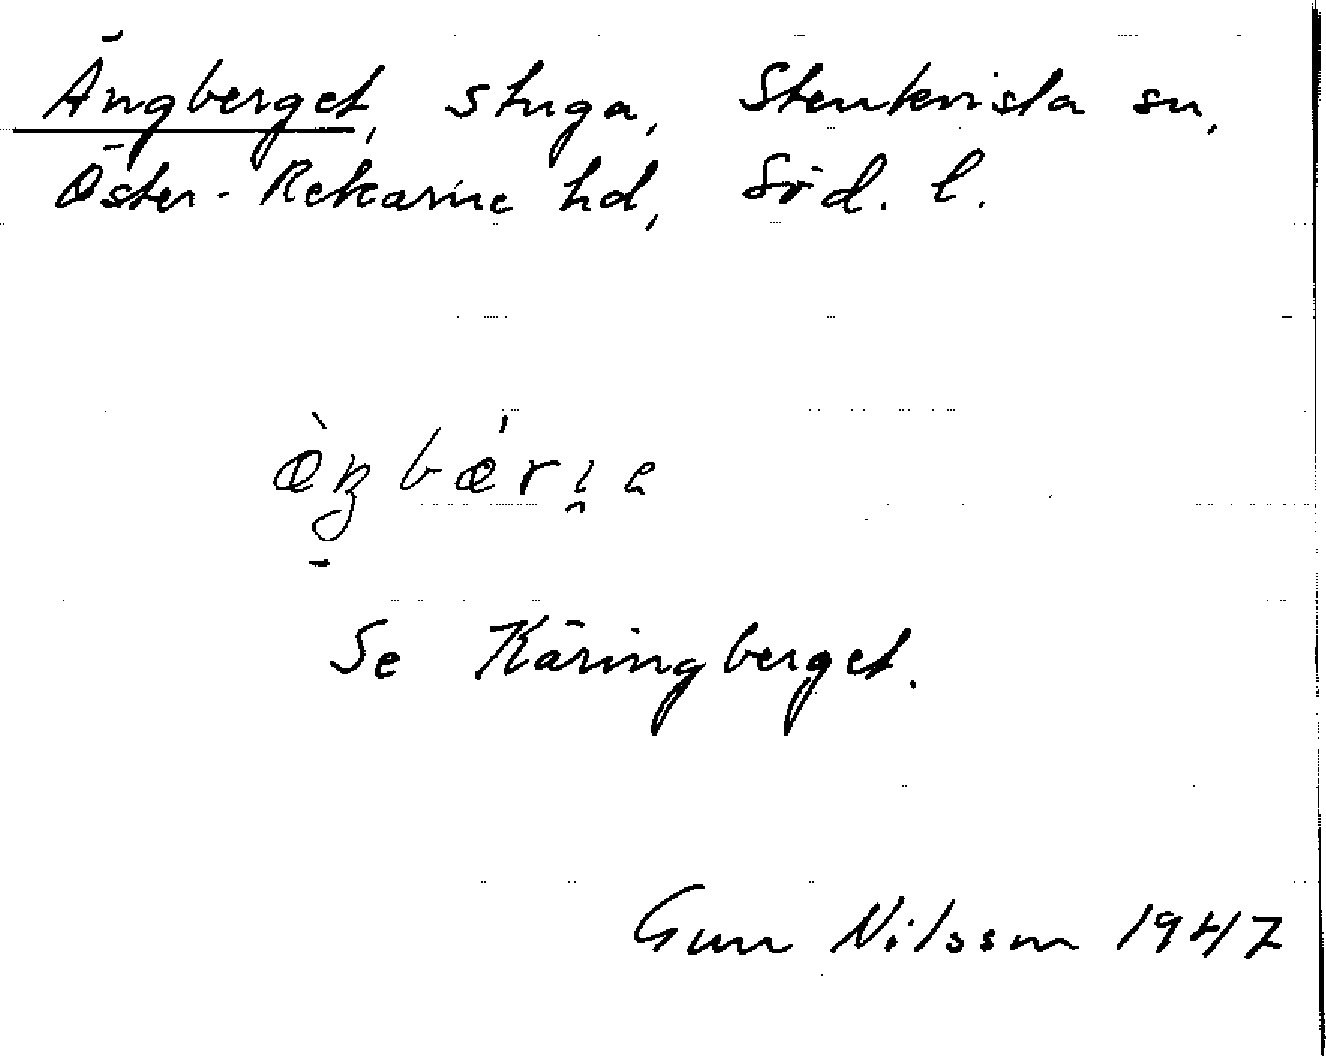 Ängberget, stuga, Stenkvista sn,
Öster-Rekarne hd, Söd. l.
Se Käringberget.
Gun Nilsson 1947